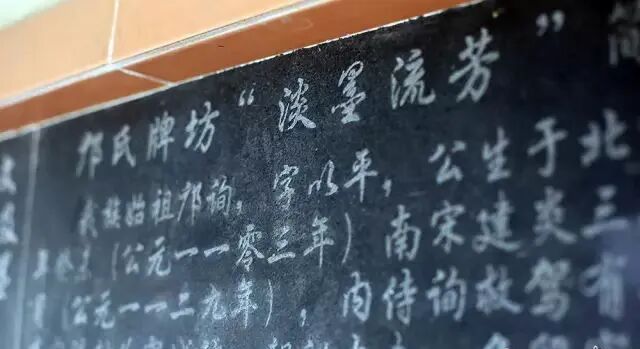 邝氏牌坊“淡墨流芳”简
我族始祖邝询，字以平，公生于北
（公元一一零三年）南宋建炎三
（公元一一二九年），内侍询故驾有